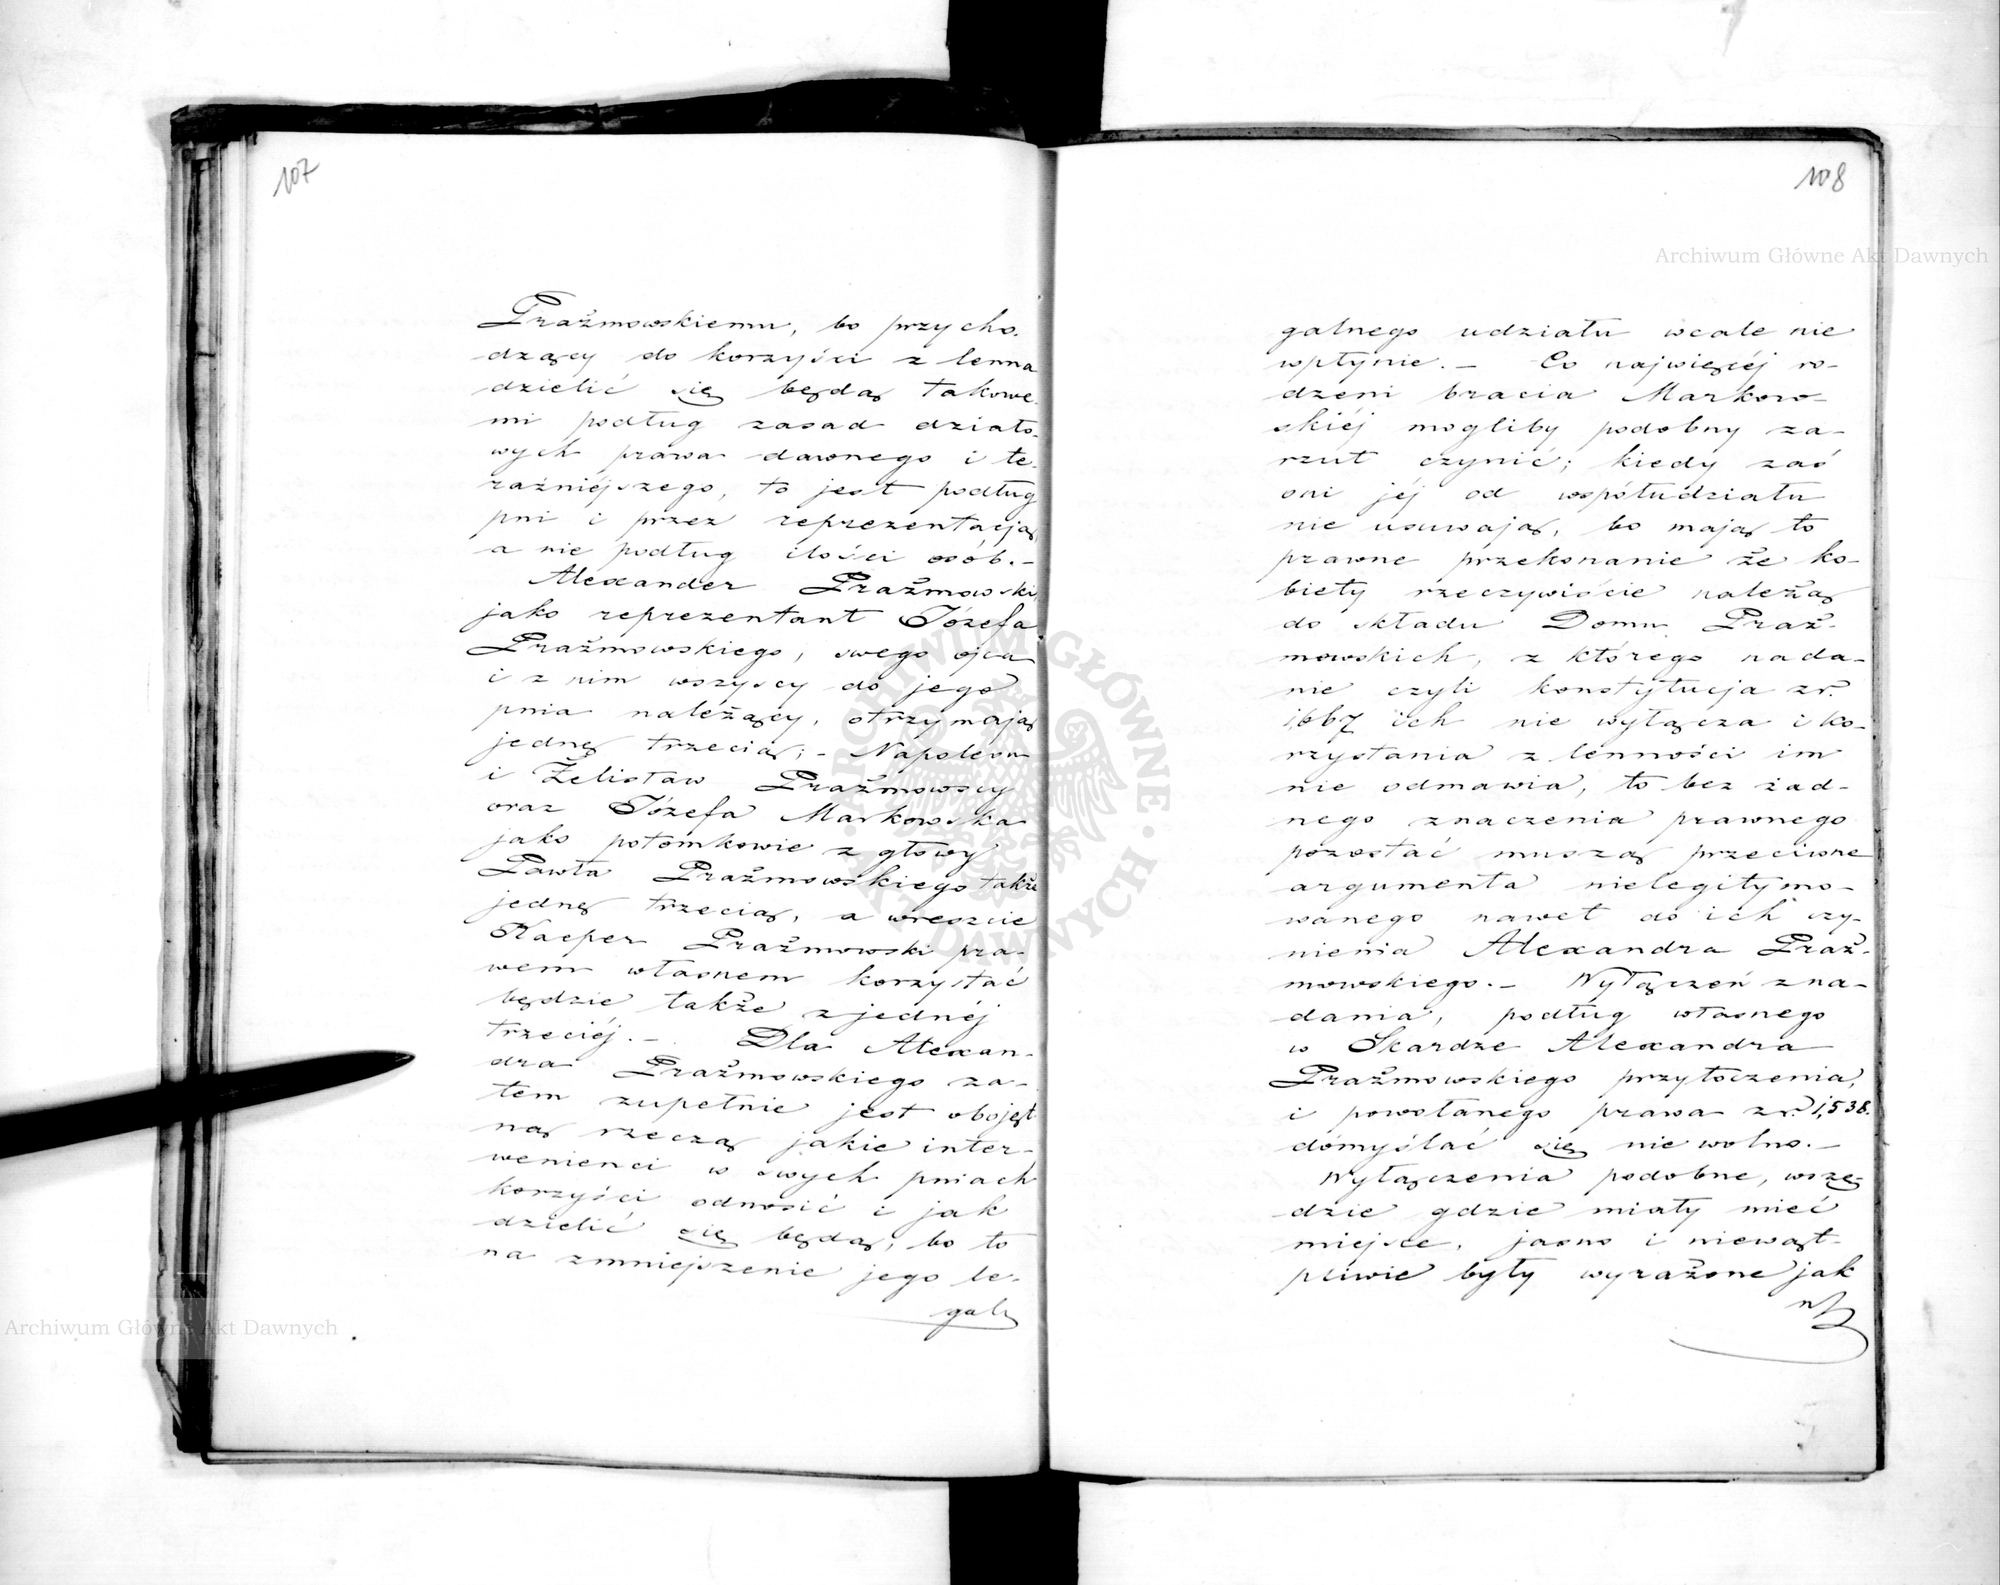 107
Prażmowskiemu, bo przycho-
dzący do korzyści z lenna
dzielić się będą takowe-
mi podług zasad działo-
wych prawa dawnego i te-
raźniéjszego, to jest podług
pni i przez reprezentacją,
a nie podług ilości osób. —
Alexander Prażmowski,
jako reprezentant Józefa
Prażmowskiego, swego ojca
i z nim wszyscy do jego
pnia należący, otrzymają
jednę trzecią; — Napoleon
i Żelisław Prażmowscy
oraz Józefa Markowska
jako potomkowie z głowy
Pawła Prażmowskiego także
jednę trzecią, a wreszcie
Kacper Prażmowski pra-
wem własnem korzystać
będzie także z jednéj
trzeciéj. — Dla Alexan-
dra Prażmowskiego za-
tem zupełnie jest obojęt
ną rzeczą jakie inter-
wenienci w swych pniach
korzyści odnosić i jak
dzielić się będą, bo to
na zmniejszenie jego le-
galn
108
galnego udziału wcale nie
wpłynie. — Co najwięcéj ro-
dzeni bracia Markow-
skiéj mogliby podobny za-
rzut czynić; kiedy zaś
oni jéj od współudziału
nie usuwają, bo mają to
prawne przekonanie że ko-
biety rzeczywiście należą
do składu Domu Praż-
mowskich, z którego nada-
nie czyli konstytucja z r.
1,667 ich nie wyłącza i ko-
rzystania z lenności im
nie odmawia, to bez żad-
nego znaczenia prawnego
pozostać muszą przeciwne
argumenta nielegitymo-
wanego nawet do ich czy-
nienia Alexandra Praż-
mowskiego. — Wyłączeń z na-
dania, podług własnego
w Skardze Alexandra
Prażmowskiego przytoczenia,
i powołanego prawa z r. 1,538.
domyślać się nie wolno. —
Wyłączenia podobne, wszę-
dzie gdzie miały mieć
miejsce, jasno i niewąt-
pliwie były wyrażone jak
Archiwum Główne Akt Dawnych
Archiwum Główne Akt Dawnych
ARCHIWUM GŁÓWNE AKT DAWNYCH